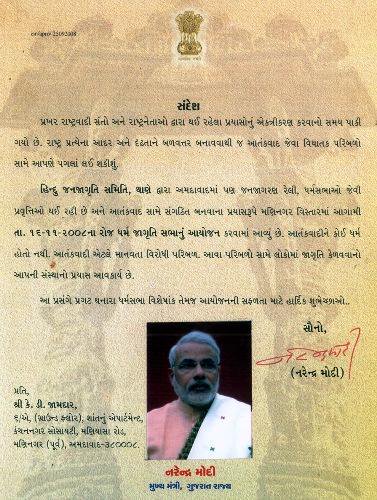 સંદેશ
પ્રખર રાષ્ટ્રવાદી સંતો અને રાષ્ટ્રનેતાઓ દ્વારા થઈ રહેલા પ્રયાસોનું એકત્રીકરણ કરવાનો સમય પાકી
ગયો છે. રાષ્ટ્ર પ્રત્યેના આદર અને દૃઢતાને બળવત્તર બનાવવાથી જ આતંકવાદ જેવા વિઘાતક પરિબળો
સામે આપણે પગલાં લઈ શકીશું.
હિન્દુ જનજાગૃતિ સમિતિ, થાણે દ્વારા અમદાવાદમાં પણ જનજાગરણ રેલી, ધર્મસભાઓ જેવી
પ્રવૃત્તિઓ થઈ રહી છે અને આતંકવાદ સામે સંગઠિત બનવાના પ્રયાસરૂપે મણિનગર વિસ્તારમાં આગામી
તા. ૧૬-૧૧-૨૦૦૮ના રોજ ધર્મ જાગૃતિ સભાનું આયોજન કરવામાં આવ્યું છે. આતંકવાદીને કોઈ ધર્મ
હોતો નથી. આતંકવાદી એટલે માનવતા વિરોધી પરિબળ. આવા પરિબળો સામે લોકોમાં જાગૃતિ કેળવવાનો
આપની સંસ્થાનો પ્રયાસ આવકાર્ય છે.
આ પ્રસંગે પ્રગટ થનારા ધર્મસભા વિશેષાંક તેમજ આયોજનની સફળતા માટે હાર્દિક શુભેચ્છાઓ..
સૌનો,
(નરેન્દ્ર મોદી)
પ્રતિ,
શ્રી કે. ડી. જામદાર,
૬/એ, (ગ્રાઉન્ડ ફ્લોર), શાંતનું એપાર્ટમેન્ટ,
કંચનનગર સોસાયટી, મણિયાસા રોડ,
મણિનગર (પૂર્વ), અમદાવાદ-૩૮૦૦૦૮.
નરેન્દ્ર મોદી
મુખ્ય મંત્રી, ગુજરાત રાજ્ય